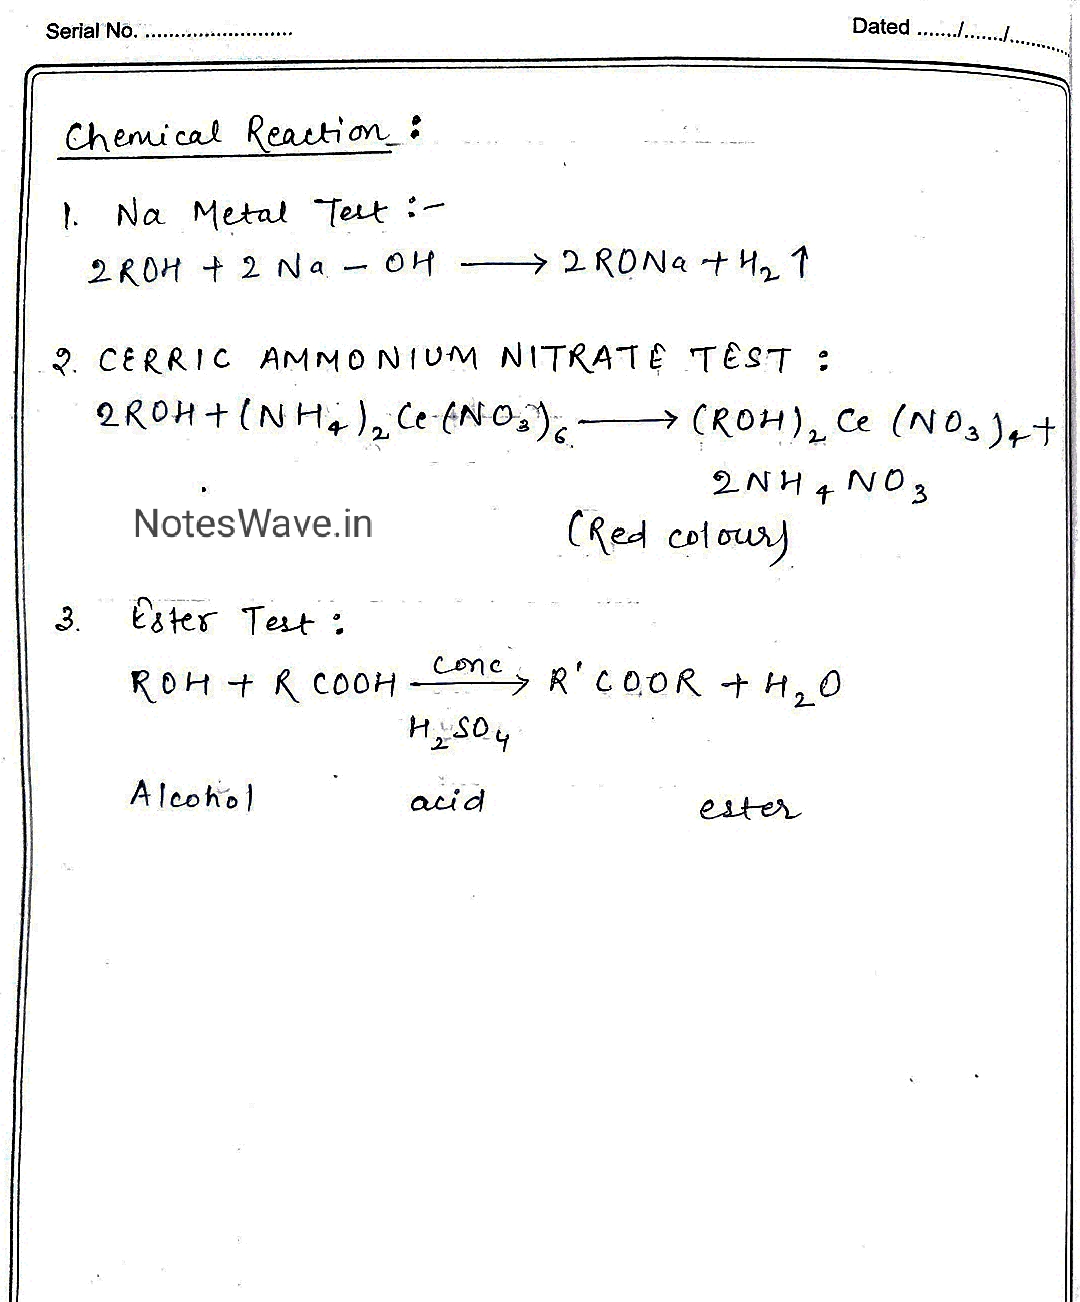 Serial No. .........................
Dated ......./......./..............
Chemical Reaction :
1. Na Metal Test :-
2ROH + 2 Na - OH ⟶ 2RONa + H₂ ↑
2. CERRIC AMMONIUM NITRATE TEST :
2ROH + (NH₄)₂ Ce (NO₃)₆ ⟶ (ROH)₂ Ce (NO₃)₄ +
2NH₄NO₃
NotesWave.in
(Red colour)
3. Ester Test :
ROH + R COOH conc ⟶ R'COOR + H₂O
H₂SO₄
Alcohol acid ester